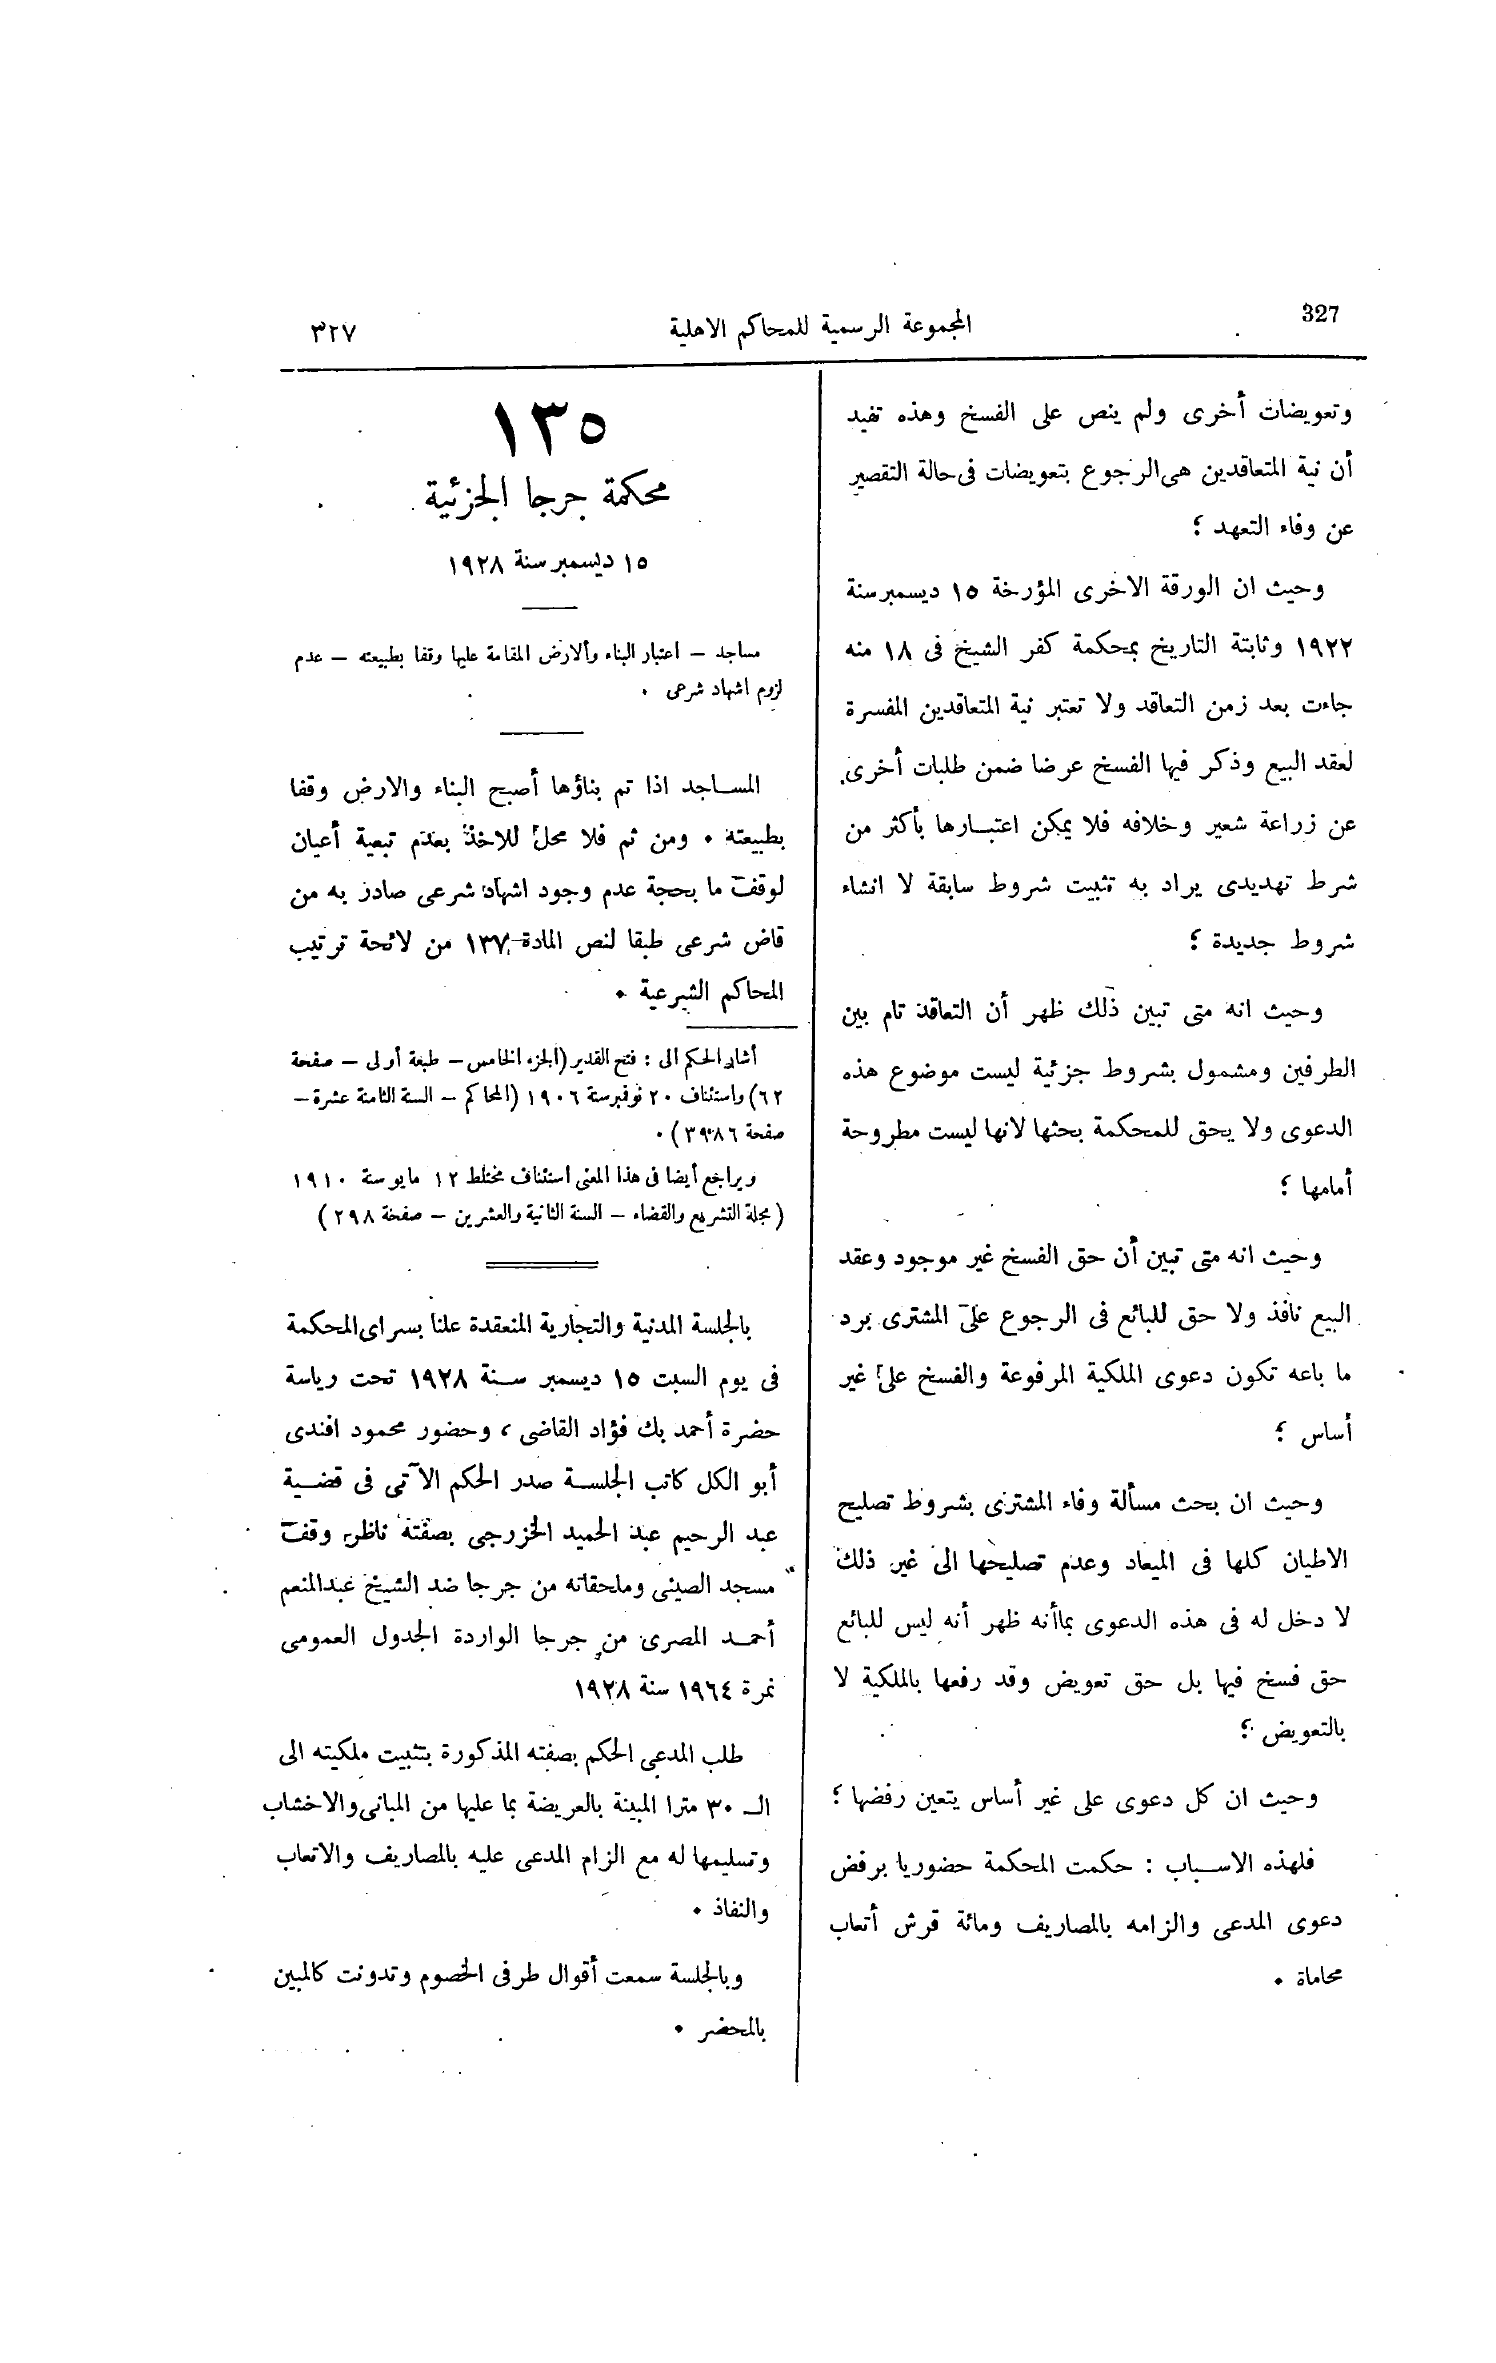 327
المجموعة الرسمية للمحاكم الاهلية
٣٢٧
وتعويضات أخرى ولم ينص على الفسخ وهذه تفيد
أن نية المتعاقدين هى الرجوع بتعويضات فى حالة التقصير
عن وفاء التعهد ؛
وحيث ان الورقة الاخرى المؤرخة ١٥ ديسمبر سنة
١٩٢٢ وثابتة التاريخ بمحكمة كفر الشيخ فى ١٨ منه
جاءت بعد زمن التعاقد ولا تعتبر نية المتعاقدين المفسرة
لعقد البيع وذكر فيها الفسخ عرضا ضمن طلبات أخرى
عن زراعة شعير وخلافه فلا يمكن اعتبارها بأكثر من
شرط تهديدى يراد به تثبيت شروط سابقة لا انشاء
شروط جديدة ؛
وحيث انه متى تبين ذلك ظهر أن التعاقد تام بين
الطرفين ومشمول بشروط جزئية ليست موضوع هذه
الدعوى ولا يحق للمحكمة بحثها لانها ليست مطروحة
أمامها ؛
وحيث انه متى تبين أن حق الفسخ غير موجود وعقد
البيع نافذ ولا حق للبائع فى الرجوع على المشترى برد
ما باعه تكون دعوى الملكية المرفوعة والفسخ على غير
أساس ؛
وحيث ان بحث مسألة وفاء المشترى بشروط تصليح
الاطيان كلها فى الميعاد وعدم تصليحها الى غير ذلك
لا دخل له فى هذه الدعوى بماأنه ظهر أنه ليس للبائع
حق فسخ فيها بل حق تعويض وقد رفعها بالملكية لا
بالتعويض ؛
وحيث ان كل دعوى على غير أساس يتعين رفضها ؛
فلهذه الاسباب : حكمت المحكمة حضوريا برفض
دعوى المدعى والزامه بالمصاريف ومائة قرش أتعاب
محاماة ٠
١٣٥
محكمة جرجا الجزئية
١٥ ديسمبر سنة ١٩٢٨
مساجد – اعتبار البناء والارض المقامة عليها وقفا بطبيعته – عدم
لزوم اشهاد شرعى ٠
المساجد اذا تم بناؤها أصبح البناء والارض وقفا
بطبيعته ٠ ومن ثم فلا محل للاخذ بعدم تبعية أعيان
لوقف ما بحجة عدم وجود اشهاد شرعى صادر به من
قاض شرعى طبقا لنص المادة ١٣٧ من لائحة ترتيب
المحاكم الشرعية ٠
أشار الحكم الى : فتح القدير (الجزء الخامس – طبعة أولى – صفحة
٦٢) واستئناف ٢٠ نوفمبر سنة ١٩٠٦ (المحاكم – السنة الثامنة عشرة –
صفحة ٣٩٨٦) ٠
ويراجع أيضا فى هذا المعنى استئناف مختلط ١٢ مايو سنة ١٩١٠
(مجلة التشريع والقضاء – السنة الثانية والعشرين – صفحة ٢٩٨)
بالجلسة المدنية والتجارية المنعقدة علنا بسراى المحكمة
فى يوم السبت ١٥ ديسمبر سنة ١٩٢٨ تحت رياسة
حضرة أحمد بك فؤاد القاضى ، وحضور محمود افندى
أبو الكل كاتب الجلسة صدر الحكم الآتى فى قضية
عبد الرحيم عبد الحميد الخزرجى بصفته ناظر وقف
مسجد الصينى وملحقاته من جرجا ضد الشيخ عبدالمنعم
أحمد المصرى من جرجا الواردة الجدول العمومى
نمرة ١٩٦٤ سنة ١٩٢٨
طلب المدعى الحكم بصفته المذكورة بتثبيت ملكيته الى
الـ ٣٠ مترا المبينة بالعريضة بما عليها من المبانى والاخشاب
وتسليمها له مع الزام المدعى عليه بالمصاريف والاتعاب
والنفاذ ٠
وبالجلسة سمعت أقوال طرفى الخصوم وتدونت كالمبين
بالمحضر ٠